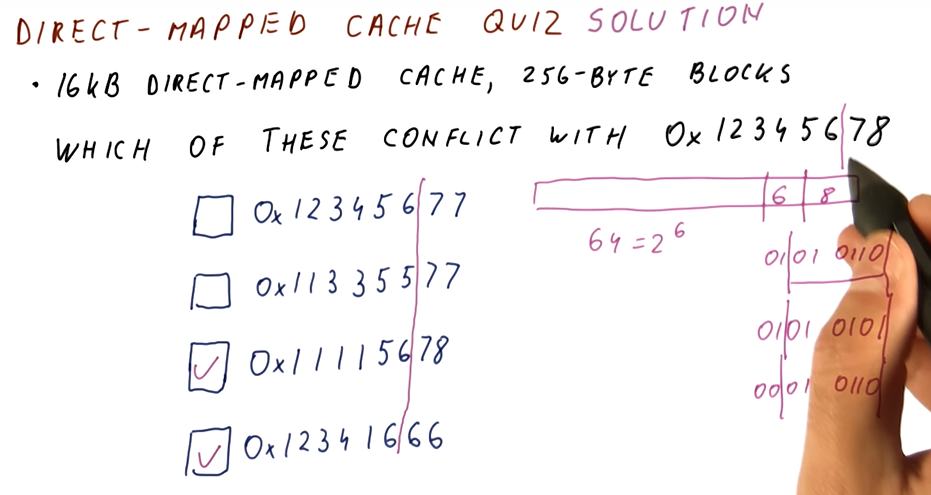 DIRECT-MAPPED CACHE QUIZ SOLUTION
• 16kB DIRECT-MAPPED CACHE, 256-BYTE BLOCKS
WHICH OF THESE CONFLICT WITH 0x12345678
0x12345677
0x11335577
0x11115678
0x12341666
6 8
64=2^6
0101 0110
0101 0101
0001 0110